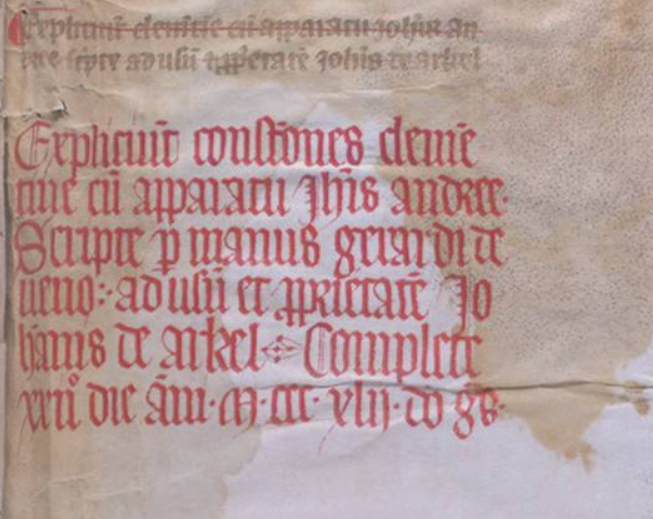 Expliciunt clem̄tie cū apparatu Johīs an
dree scpte ad usū et p̱prietatē Johīs de arkel
Expliciūt constōnes cleme
tine cū apparatu Jhīs andree.
Scripte p̱ manus gerardi de
ueno: ad usū et p̱prietatē Jo
hānis de arkel Complete
xxııº die āııı. M. ccc. xlıȷ. do gͣs.